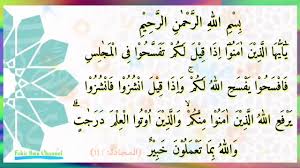 بِسْمِ اللهِ الرَّحْمٰنِ الرَّحِيْمِ
يٰٓاَيُّهَا الَّذِيْنَ اٰمَنُوْٓا اِذَا قِيْلَ لَكُمْ تَفَسَّحُوْا فِى الْمَجٰلِسِ
فَافْسَحُوْا يَفْسَحِ اللهُ لَكُمْۚ وَاِذَا قِيْلَ انْشُزُوْا فَانْشُزُوْا
يَرْفَعِ اللهُ الَّذِيْنَ اٰمَنُوْا مِنْكُمْۙ وَالَّذِيْنَ اُوْتُوا الْعِلْمَ دَرَجٰتٍۗ
وَاللهُ بِمَا تَعْمَلُوْنَ خَبِيْرٌ (المجادلة : ١١)
Fikir Ibnu Channel